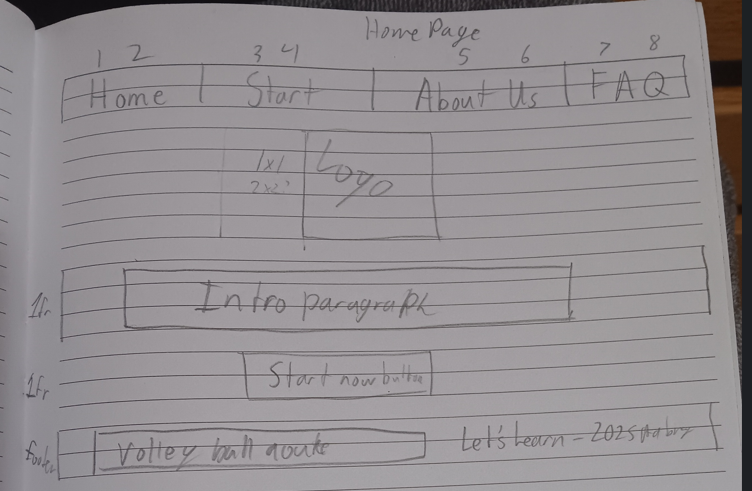 Home Page
1 2 3 4 5 6 7 8
Home Start About Us FAQ
1x1
Logo
1fr
Intro paragraph
1fr
Start now button
footer
Volley ball Let's Learn - 2025